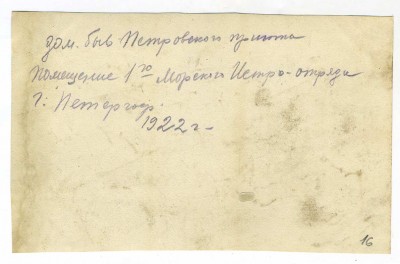 дом. быв Петровского приюта
Помещение 1го Морского Истро-отряда
г. Петергоф.
1922 г-
16